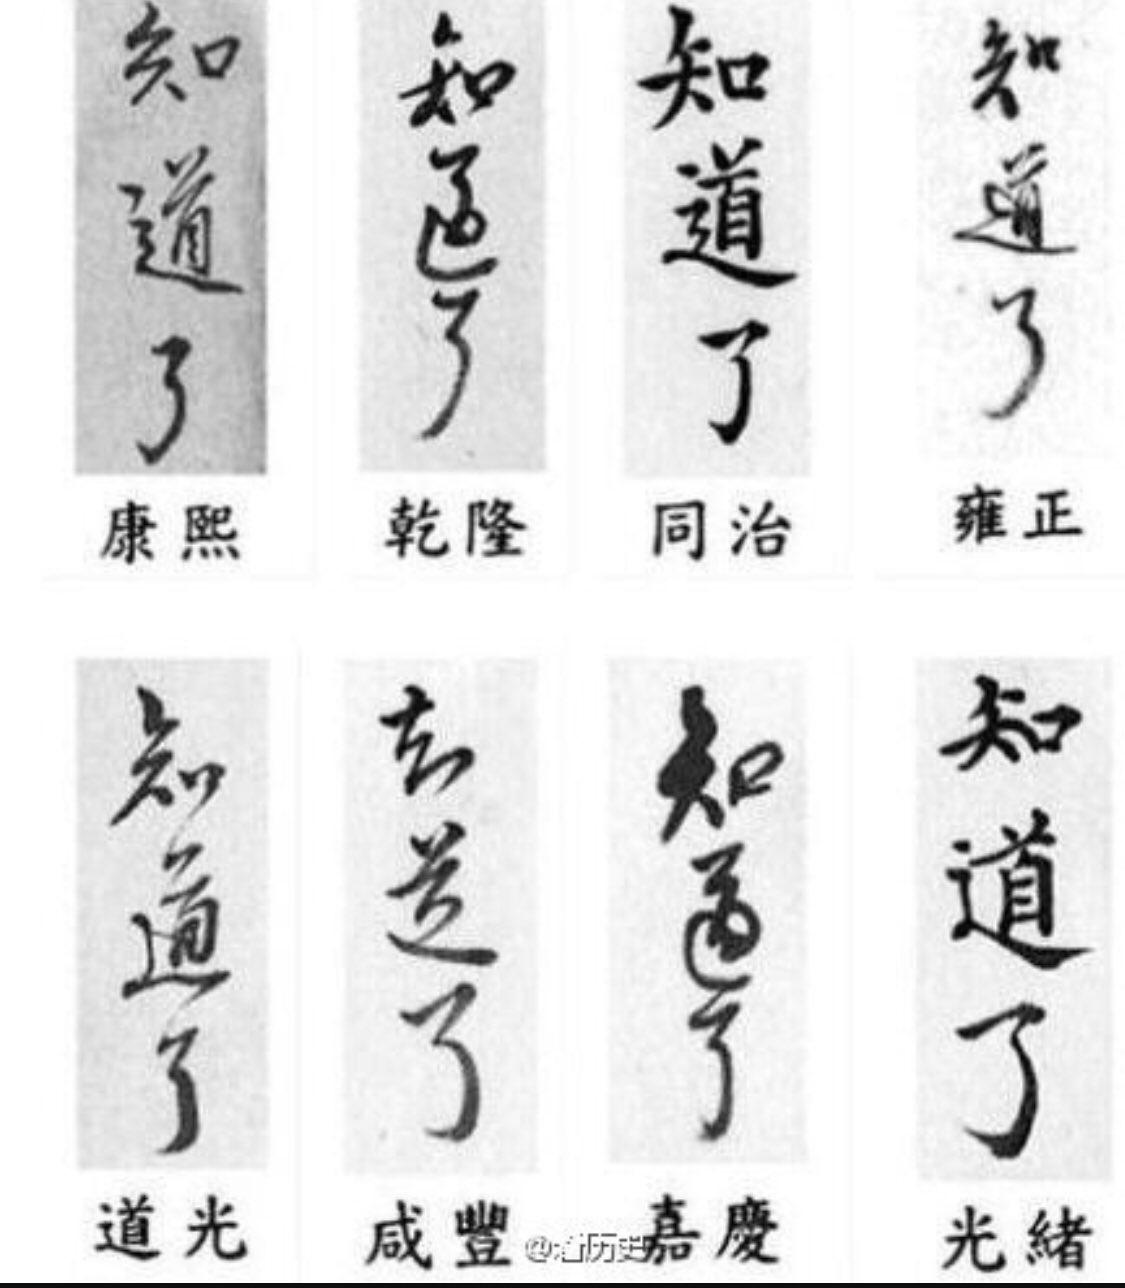 知道了
知道了
知道了
知道了
康熙
乾隆
同治
雍正
知道了
知道了
知道了
知道了
道光
咸豐
嘉慶
光緒